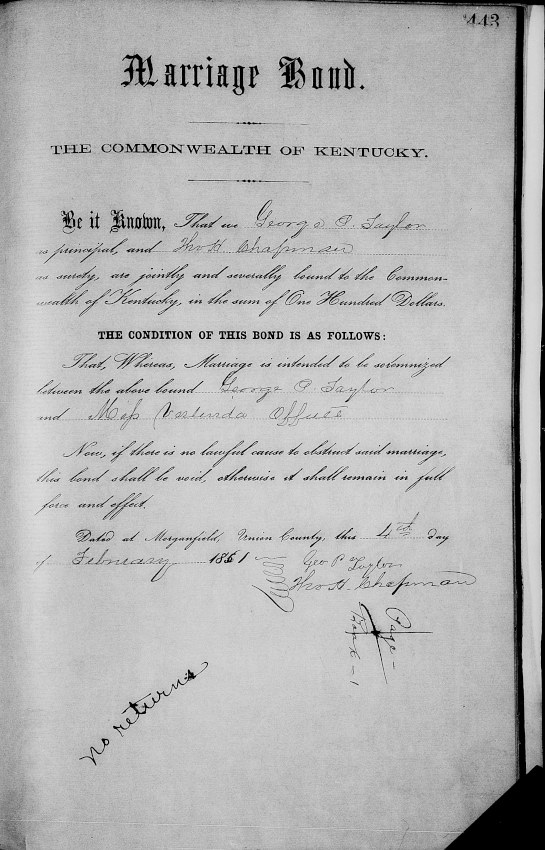 443
Marriage Bond.
THE COMMONWEALTH OF KENTUCKY.
Be it Known, That we George P. Taylor
as principal, and Thos H. Chapman
as surety, are jointly and severally bound to the Common-
wealth of Kentucky, in the sum of One Hundred Dollars.
THE CONDITION OF THIS BOND IS AS FOLLOWS:
That, Whereas, Marriage is intended to be solemnized
between the above bound George P. Taylor
and Miss Verlinda Offutt
Now, if there is no lawful cause to obstruct said marriage,
this bond shall be void, otherwise it shall remain in full
force and effect.
Dated at Morganfield, Union County, this 4th day
of February 1851
Geo P Taylor
Thos H. Chapman
Page -
Book - 1
no return